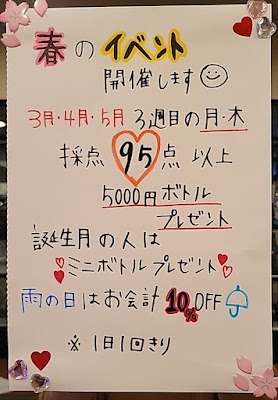 春のイベント
開催します
3月・4月・5月 3週目の月・木
採点 95点 以上
5000円ボトル
プレゼント
誕生月の人は
ミニボトルプレゼント
雨の日はお会計10%OFF
※1日1回きり